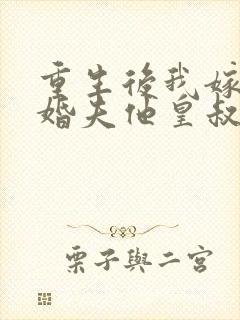 重生後我嫁
婚夫他皇叔
栗子與二宮